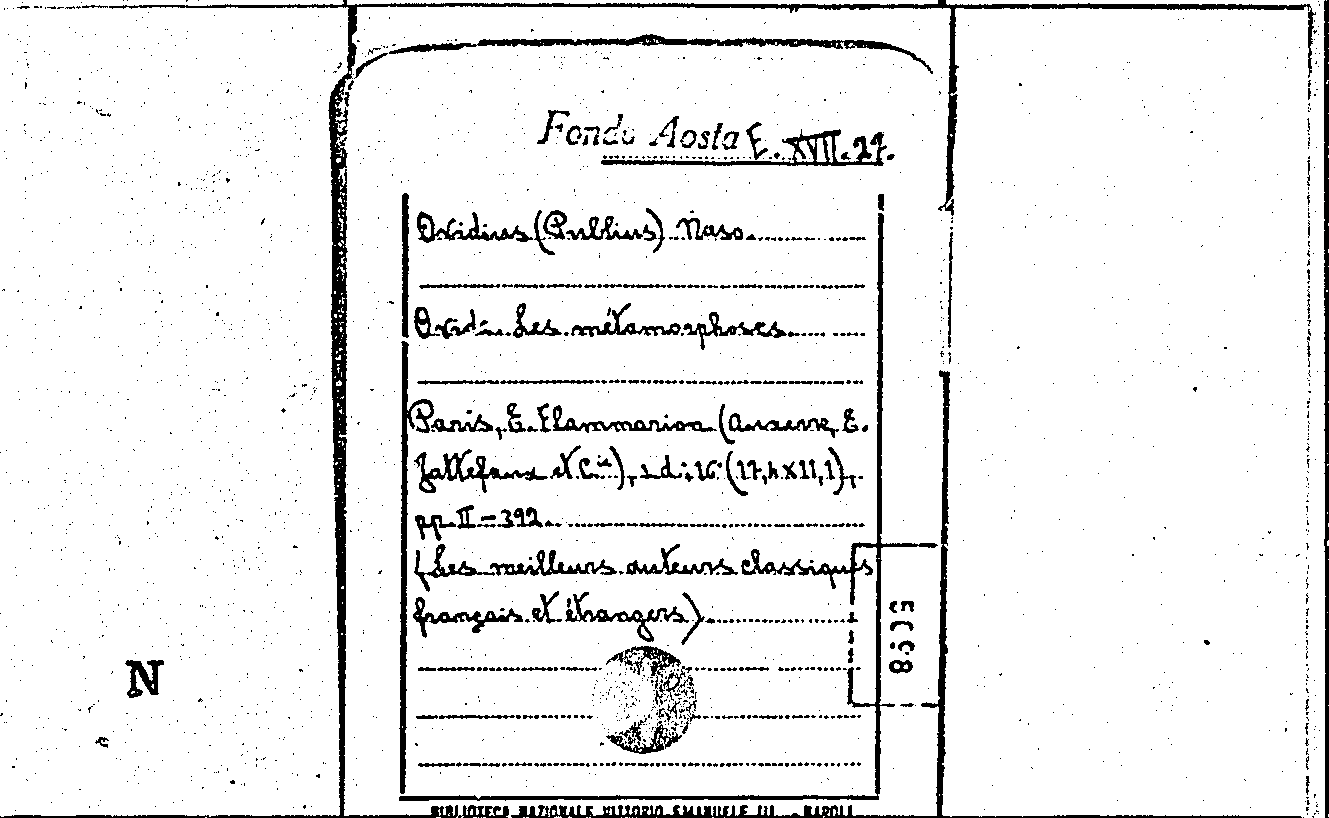 Fondo Aosta E. XVII. 27.
Ovidius (Publius) Naso.
Ovide. Les métamorphoses.
Paris, E. Flammarion (Auxerre, E.
et C.ie), s. d.; 16° (17,
pp. II - 392.
(Les meilleurs auteurs classiques
français et étrangers)
N
BIBLIOTECA NAZIONALE VITTORIO EMANUELE III - NAPOLI